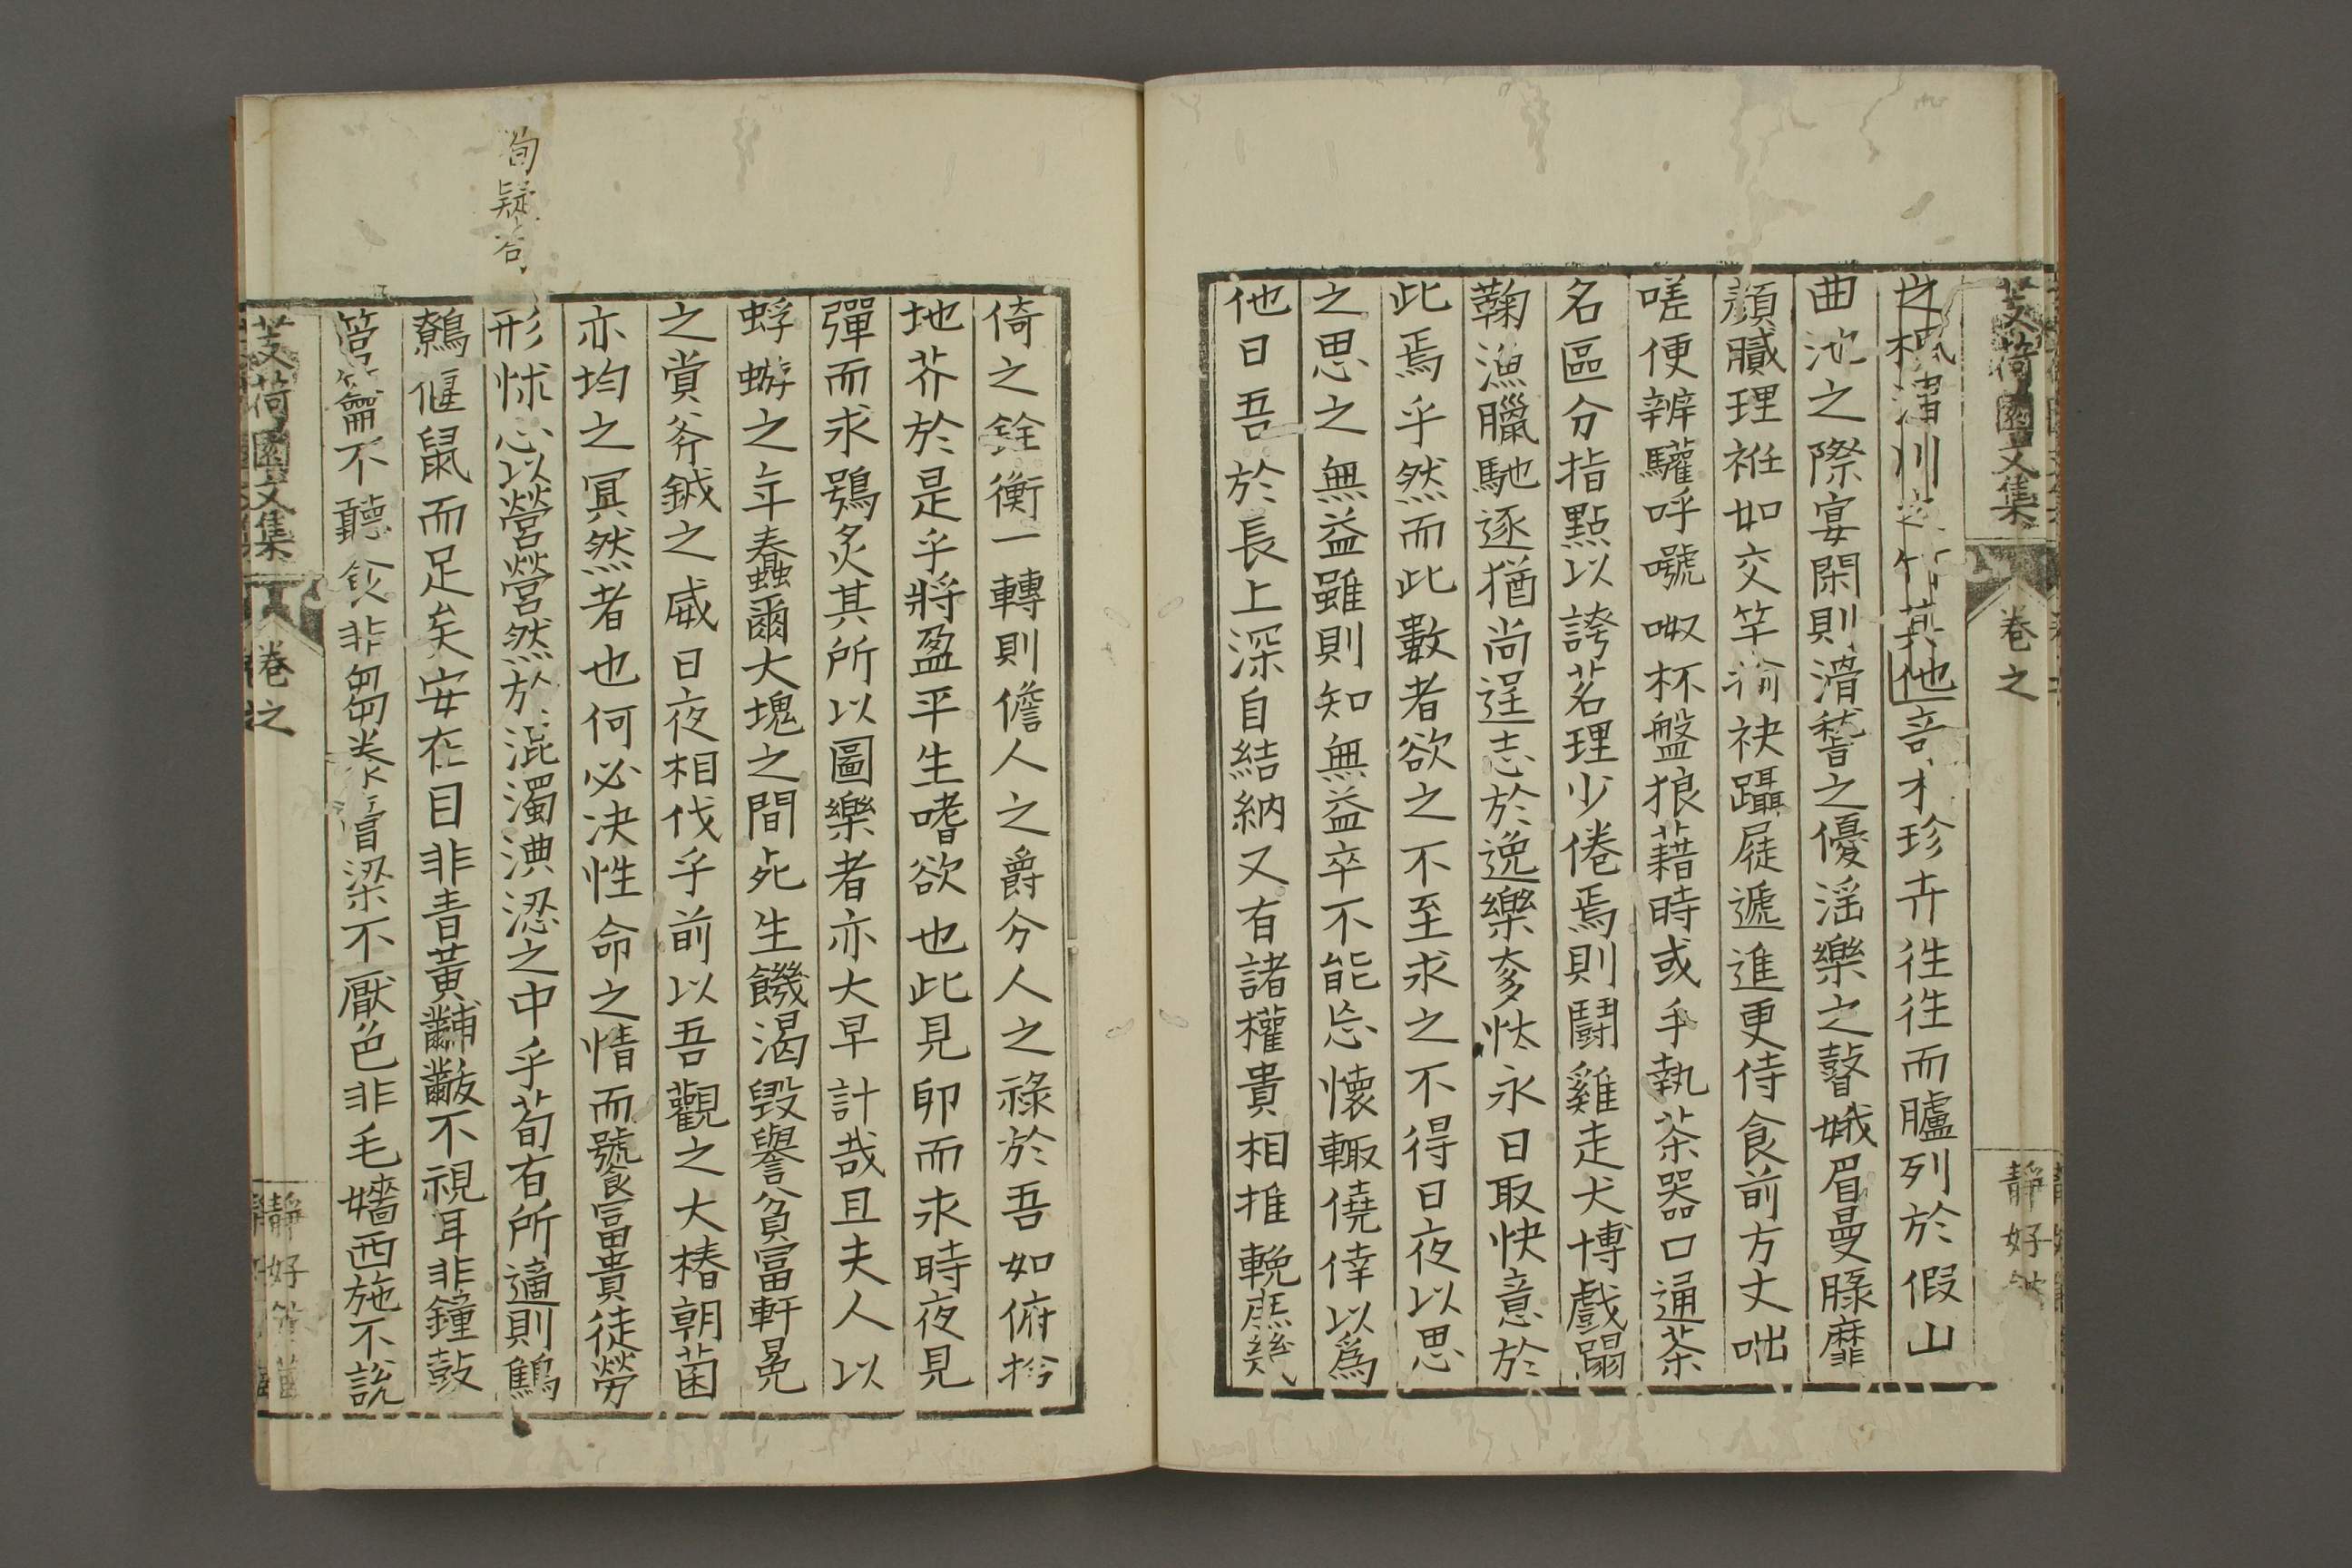 芰荷園文集
卷之
靜好
之楓淇川之竹其他奇木珍卉徃徃而臚列於假山
曲池之際宴閑則滑稽之優滛樂之瞽娥眉曼睩靡
顏膩理袵如交竿褕袂躡屣遞進更侍食前方丈咄
嗟便辨驩呼號呶杯盤狼藉時或手執茶器口通茶
名區分指點以誇茗理少倦焉則鬪雞走犬博戲蹋
鞠漁臘馳逐猶尚逞志於逸樂奓忲永日取快意於
此焉乎然而此數者欲之不至求之不得日夜以思
之思之無益雖則知無益卒不能忘懷輙僥倖以爲
他日吾於長上深自結納又有諸權貴相推輓庶幾
倚之銓衡一轉則儋人之爵分人之祿於吾如俯拾
地芥於是乎將盈平生嗜欲也此見卵而求時夜見
彈而求鴞炙其所以圖樂者亦大早計哉且夫人以
蜉蝣之年蠢爾大塊之間死生饑渴毀譽貧富軒冕
之賞斧鉞之威日夜相伐乎前以吾觀之大椿朝菌
亦均之冥然者也何必决性命之情而饕富貴徒勞
形怵心以營營然於混濁淟涊之中乎荀有所適則鷦
鷯偃鼠而足矣安在目非青黃黼黻不視耳非鐘鼓
筦籥不聽食非芻豢膏梁不厭色非毛嬙西施不說
芰荷園文集
卷之
靜好
荀疑苟